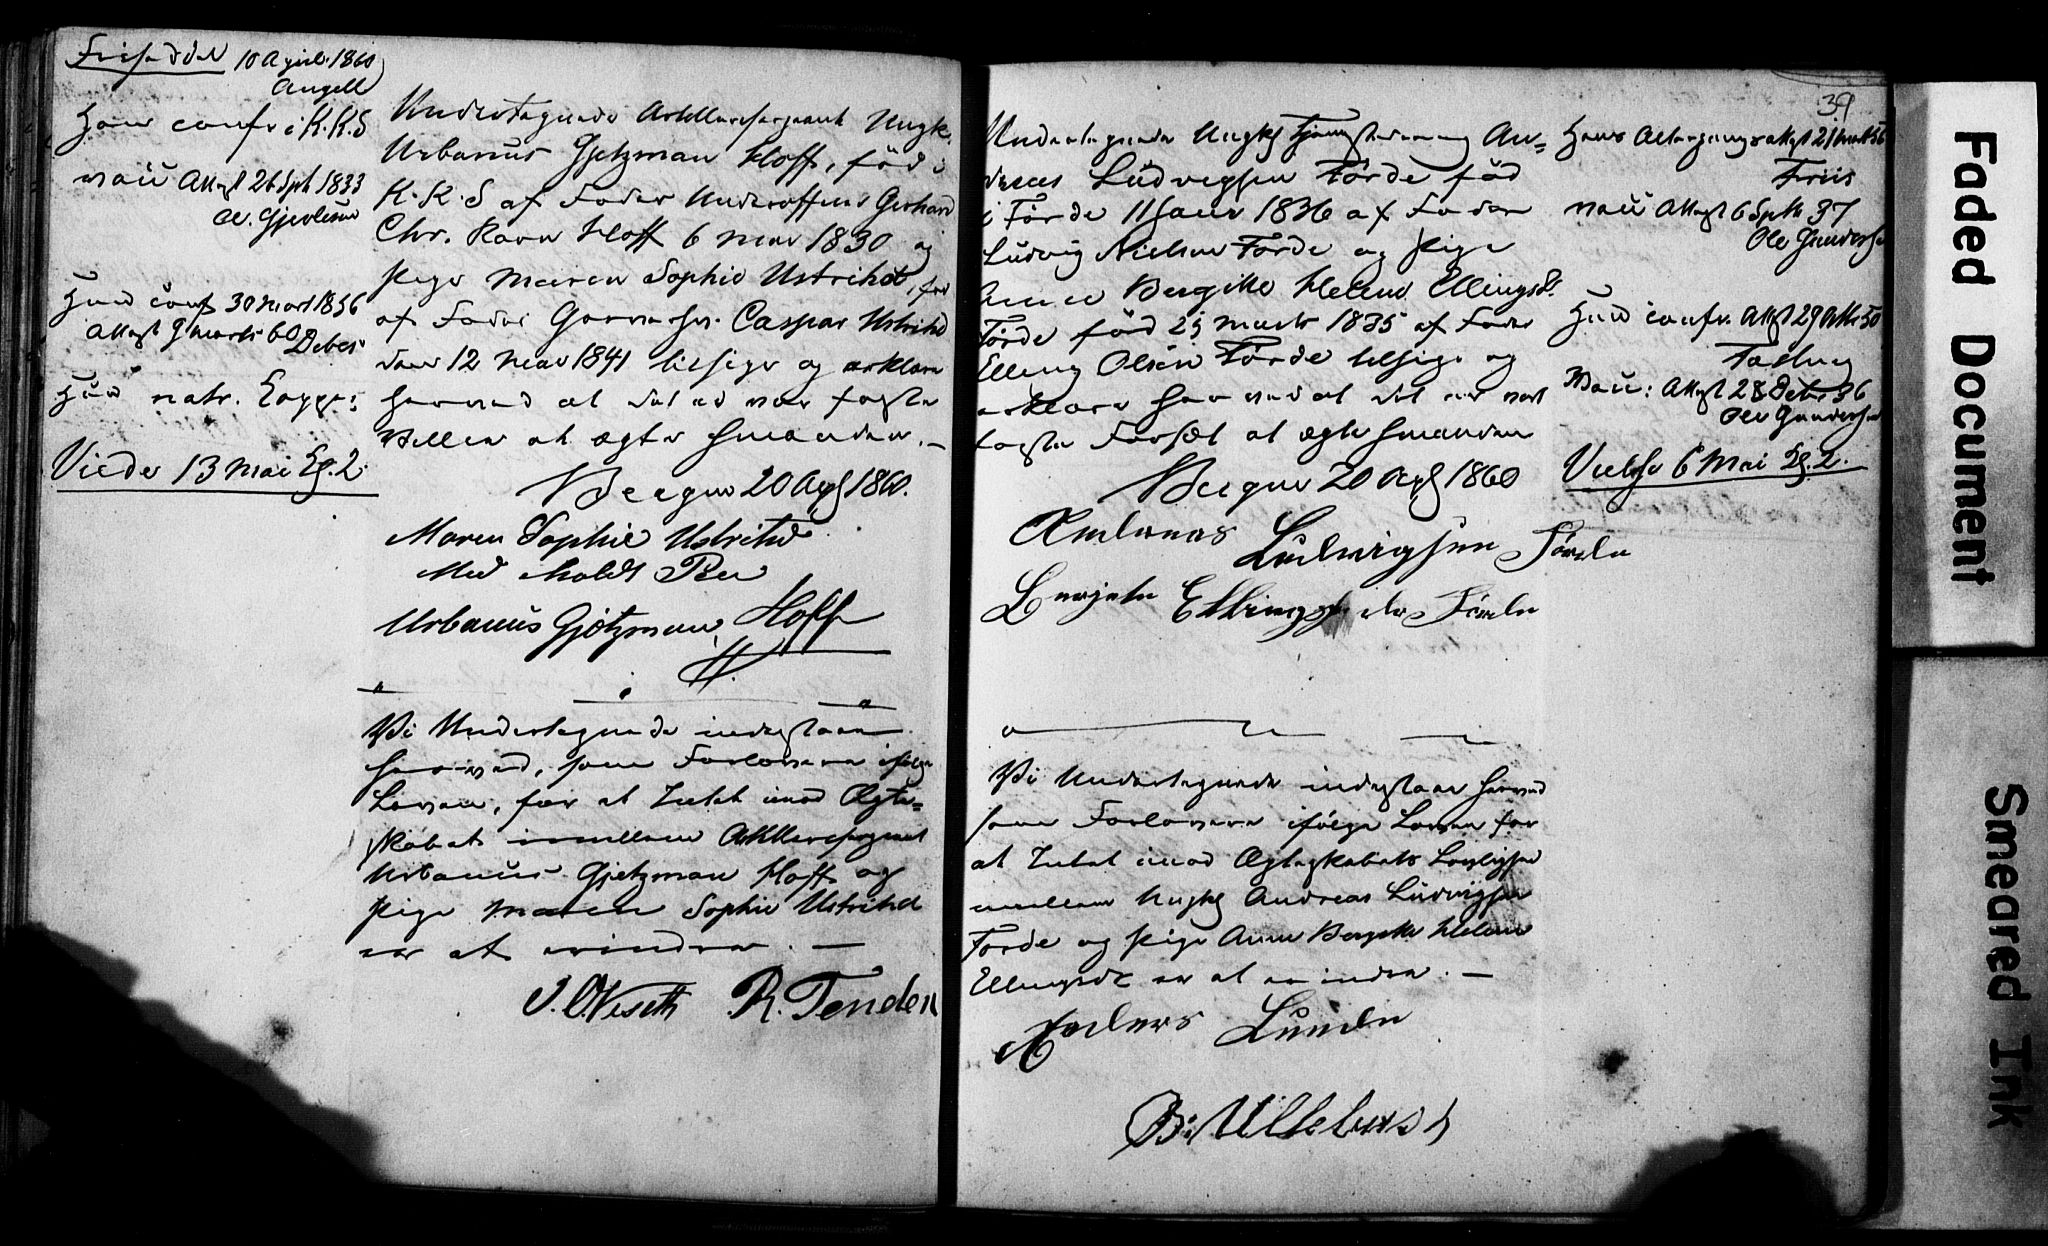 Friseddel 10 April 1860
Angell
Hans conf i K. K. S
vacc Attest 26 Spt 1833
Cl. Gjertsen
Hun conf 30 Mart 1856
Attest 9 Marts 60 Debes
Hun natr. Kopper
Viede 13 Mai Kl. 2
Undertegnede Artillerisergeant Ungk.
Urbanus Gjetzman Hoff, fød i
K. K. S af Fader Underofficer Gerhard
Chr. Ravn Hoff 6 Mai 1830 og
Pige Maren Sophie Ustrihd, fød
af Fader Garver Caspar Ustrihd
den 12 Mai 1841 tilsige og erklære
herved at det er vor faste
Villie at ægte hinanden. —
Bergen 20 Apl 1860.
Maren Sophie Ustrihd
Med holdt Pen
Urbanus Gjetzman Hoff
Vi Undertegnede indestaae
herved, som Forlovere ifølge
Loven, for at Intet imod Ægte=
skabet imellem Artillerisergeant
Urbanus Gjetzman Hoff og
Pige Maren Sophie Ustrihd
er at erindre. —
R. Tender
39
Undertegnede Ungkl Tjenestedreng An=
dreas Ludvigsen Førde fød
i Førde 11 Janr 1836 af Fader
Ludvig Nielsen Førde og Pige
Anne Bergitte Helene Ellingsdr
Førde fød 25 Marts 1835 af Fader
Elling Olsen Førde tilsige og
erklære herved at det er vort
faste Forsæt at ægte hinanden
Bergen 20 Apl 1860
Andreas Ludvigsen Førde
Berjete Ellingsdr Førde
Vi Undertegnede indestaae herved
som Forlovere ifølge Loven for
at Intet imod Ægteskabets Lovlighed
imellem Ungkl Andreas Ludvigsen
Førde og Pige Anne Bergitte Helene
Ellingsdr er at erindre. —
Anders Lunde
Hans Altergangsattest 21 Mart 56
Friis
vacc Attest 6 Spt 37
Ole Gundersen
Hun conf. Attest 29
Vacc: Attest 28 36
Ole Gundersen
Viede 6 Mai Kl. 2.
Faded Document
Smeared Ink